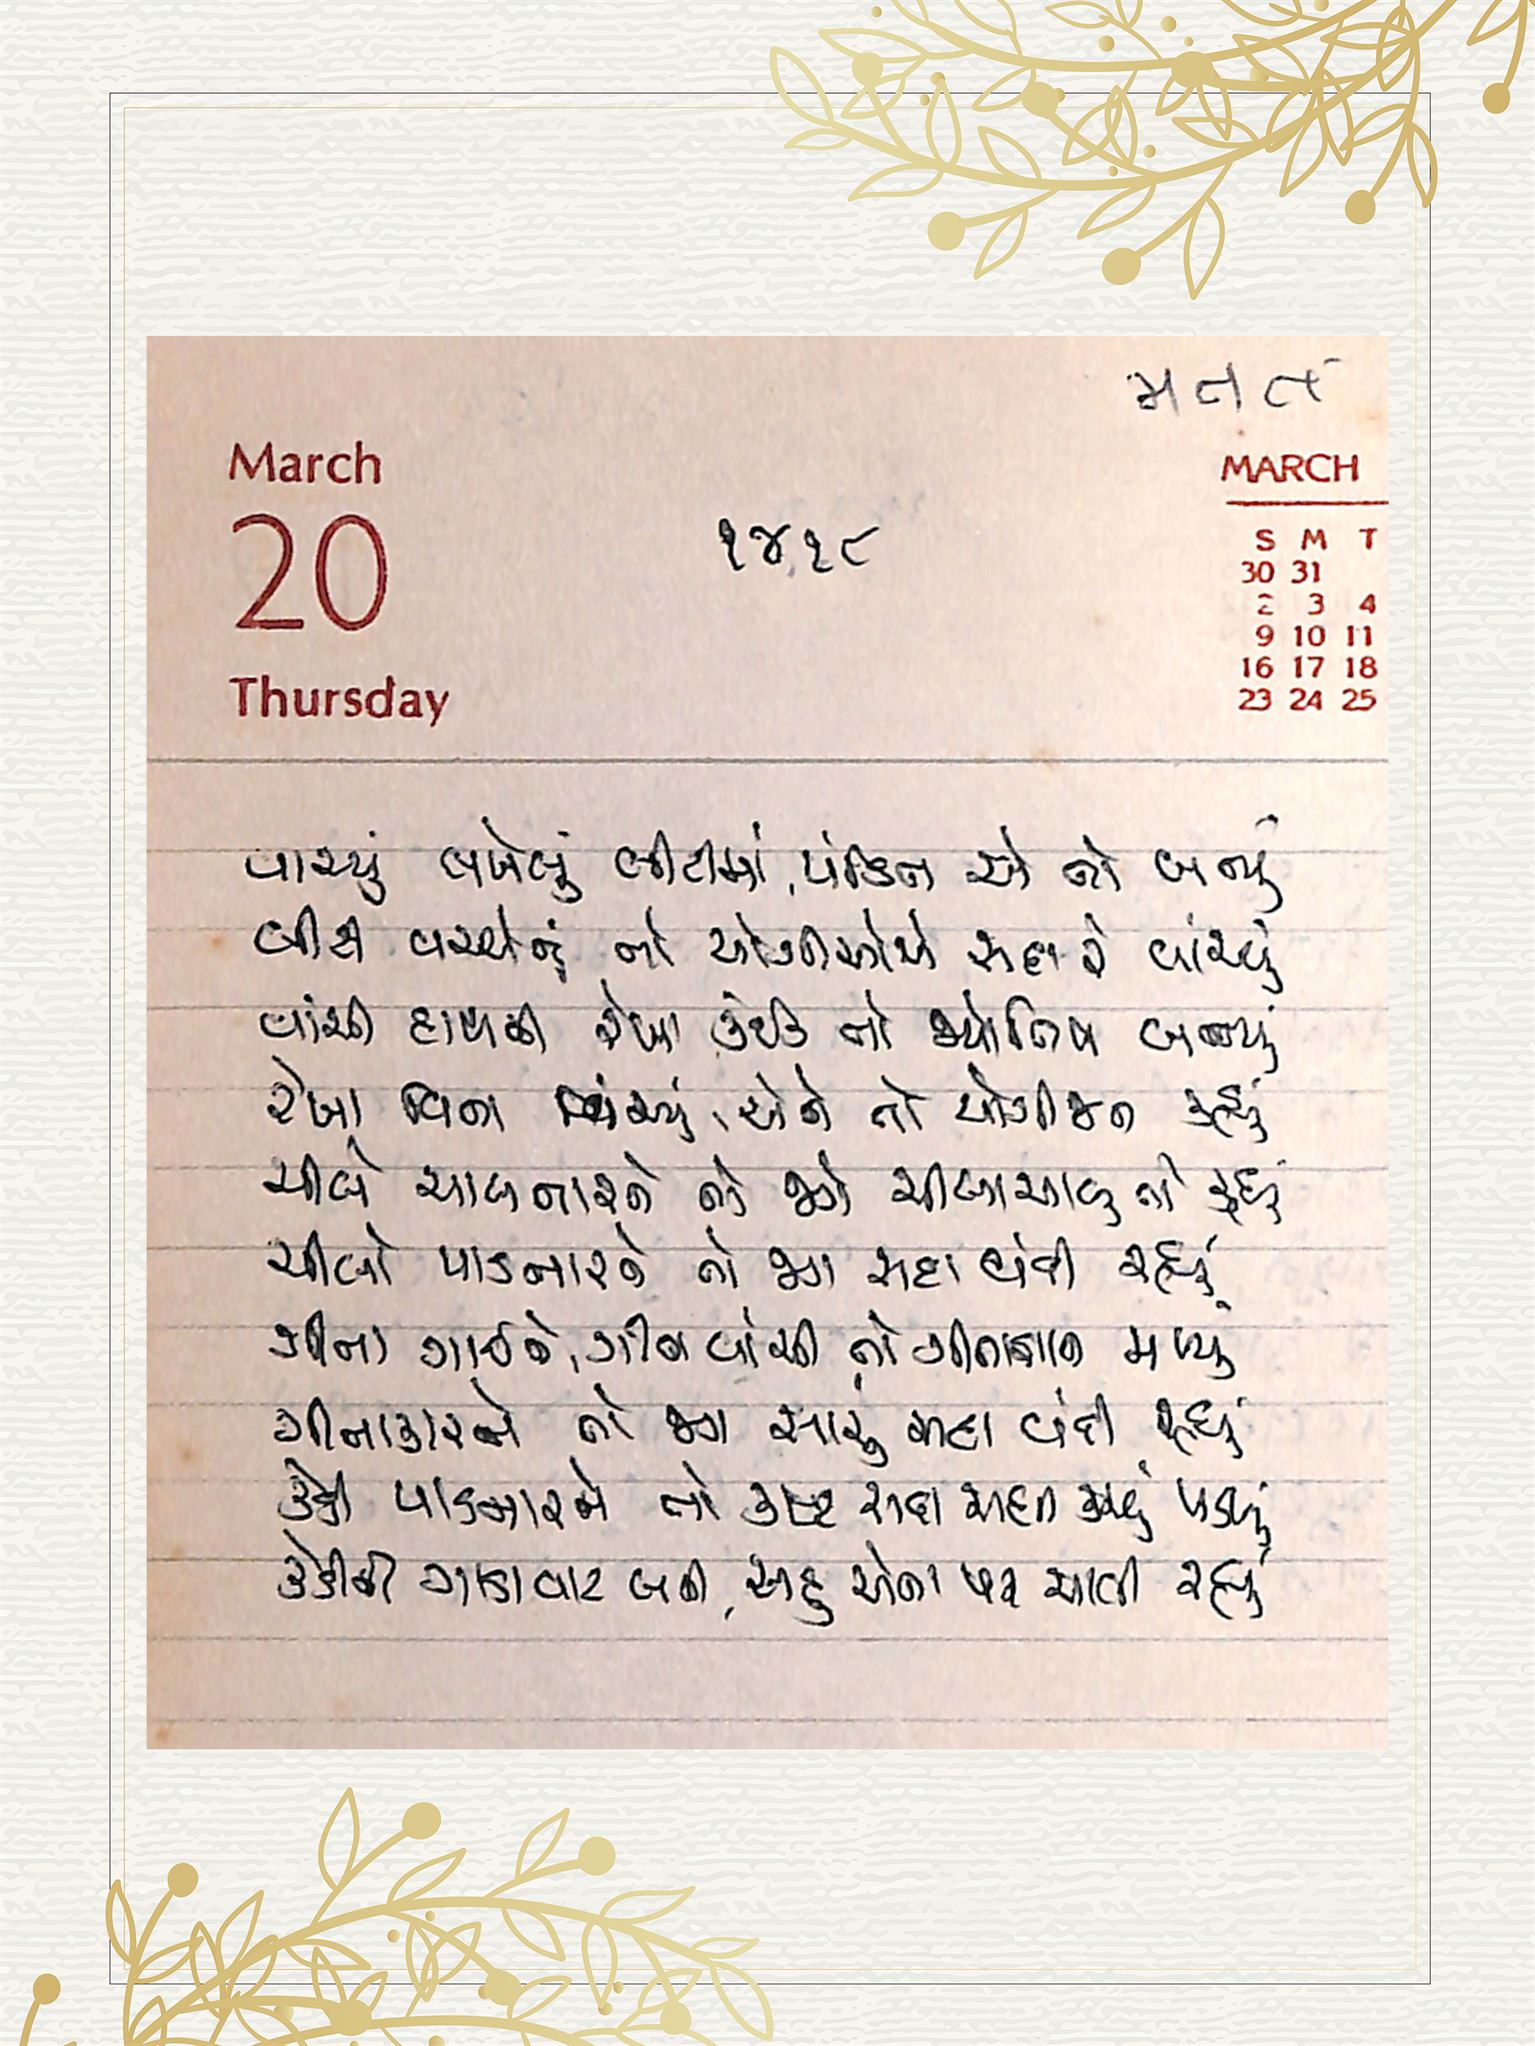 March
20
Thursday
૧૪૧૮
MARCH
S M T
30 31
2 3 4
9 10 11
16 17 18
23 24 25
વાચ્યું લખેલું લીટીમાં, પંડિત એ તો બન્યું
લીટી વચ્ચેનું તો યોગીઓએ સદા રે વાંચ્યું
વાંચી હાથની રેખા કંઈક તો જ્યોતિષ બન્યું
રેખા વિના વાંચ્યું, એને તો યોગીજન કહ્યું
ચીલે ચાલનારને તો જગે ચીલાચાલુ તો કહ્યું
ચીલો પાડનારને તો જગ સદા વંદી રહ્યું
ગીતા ગાઈને, ગીતા વાંચી તો ગીતાજ્ઞાન મળ્યું
ગીતાકારને તો જગ સારું સદા વંદી રહ્યું
કેડી પાડનારને તો કષ્ટ સદા સહન કરવું પડ્યું
કેડીની ગાડાવાટ બની, સહુ એના પર ચાલી રહ્યું